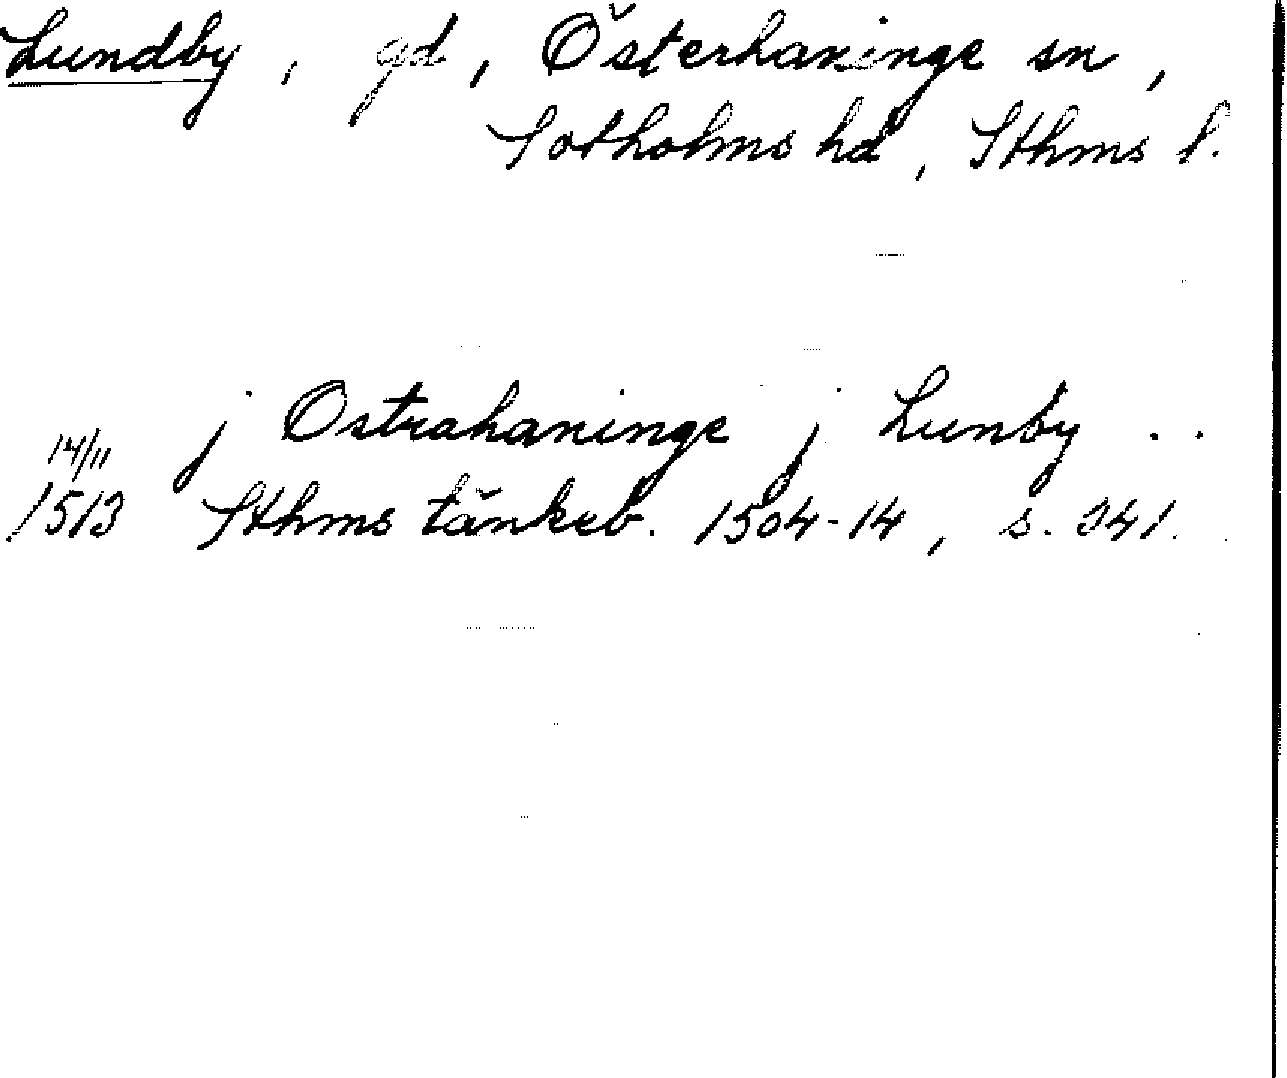 Lundby, gd, Österhaninge sn,
Sotholms hd, Sthms l.
j Ostrahaninge j Lunby ..
14/11
1513 Sthms tänkeb. 1504-14, s. 341.